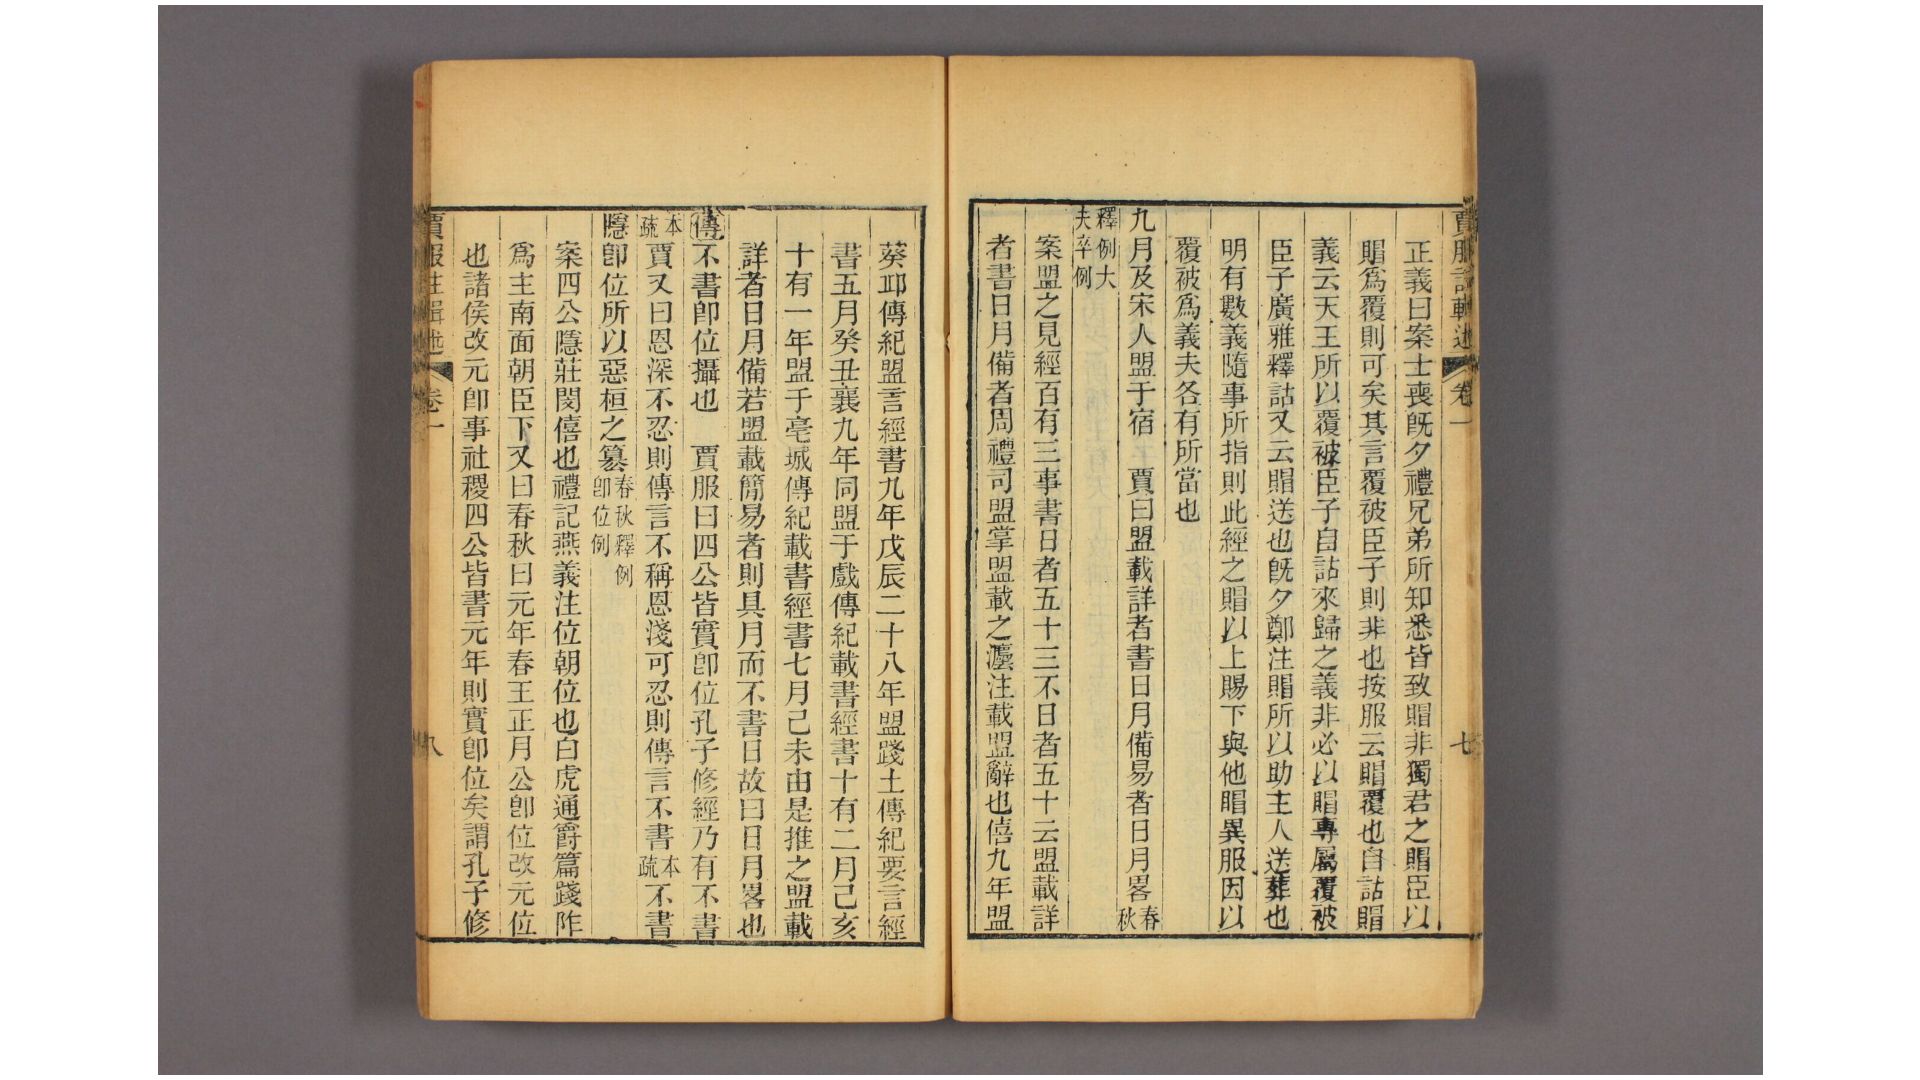 正義曰案士喪旣夕禮兄弟所知悉皆致賵非獨君之賵臣以
賵爲覆則可矣其言覆被臣子則非也按服云賵覆也自詁賵
義云天王所以覆被臣子自詁來歸之義非必以賵專屬覆被
臣子廣雅釋詁又云賵送也旣夕鄭注賵所以助主人送葬也
明有數義隨事所指則此經之賵以上賜下與他賵異服因以
覆被爲義夫各有所當也
九月及宋人盟于宿 賈曰盟載詳者書日月備易者日月畧春秋
釋例大夫卒例
案盟之見經百有三事書日者五十三不日者五十云盟載詳
者書日月備者周禮司盟掌盟載之灋注載盟辭也僖九年盟
賈服註輯述 卷一 七
葵邱傳紀盟言經書九年戊辰二十八年盟踐土傳紀要言經
書五月癸丑襄九年同盟于戲傳紀載書經書十有二月己亥
十有一年盟于亳城傳紀載書經書七月己未由是推之盟載
詳者日月備若盟載簡易者則具月而不書日故曰日月畧也
傳不書卽位攝也 賈服曰四公皆實卽位孔子修經乃有不書
本疏賈又曰恩深不忍則傳言不稱恩淺可忍則傳言不書本疏不書
隱卽位所以惡桓之篡春秋釋例卽位例
案四公隱莊閔僖也禮記燕義注位朝位也白虎通爵篇踐阼
爲主南面朝臣下又曰春秋曰元年春王正月公卽位改元位
也諸侯改元卽事社稷四公皆書元年則實卽位矣謂孔子修
賈服註輯述 卷一 八